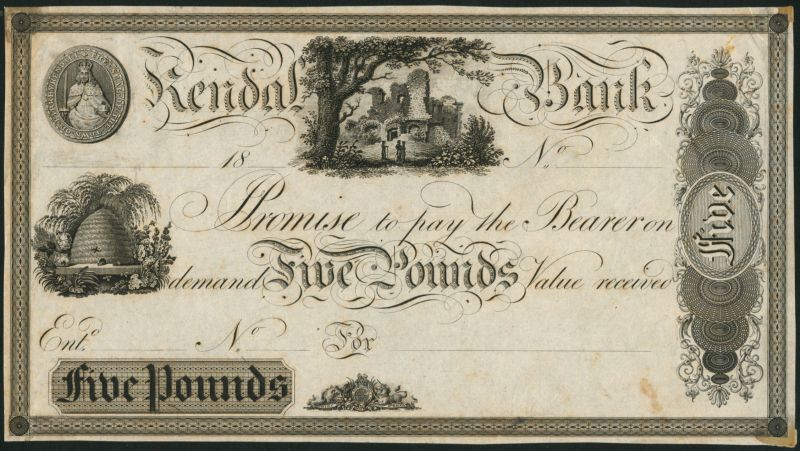 Kendal Bank
18 No
I Promise to pay the Bearer on
demand Five Pounds Value received
Five
Entd No For
Five Pounds